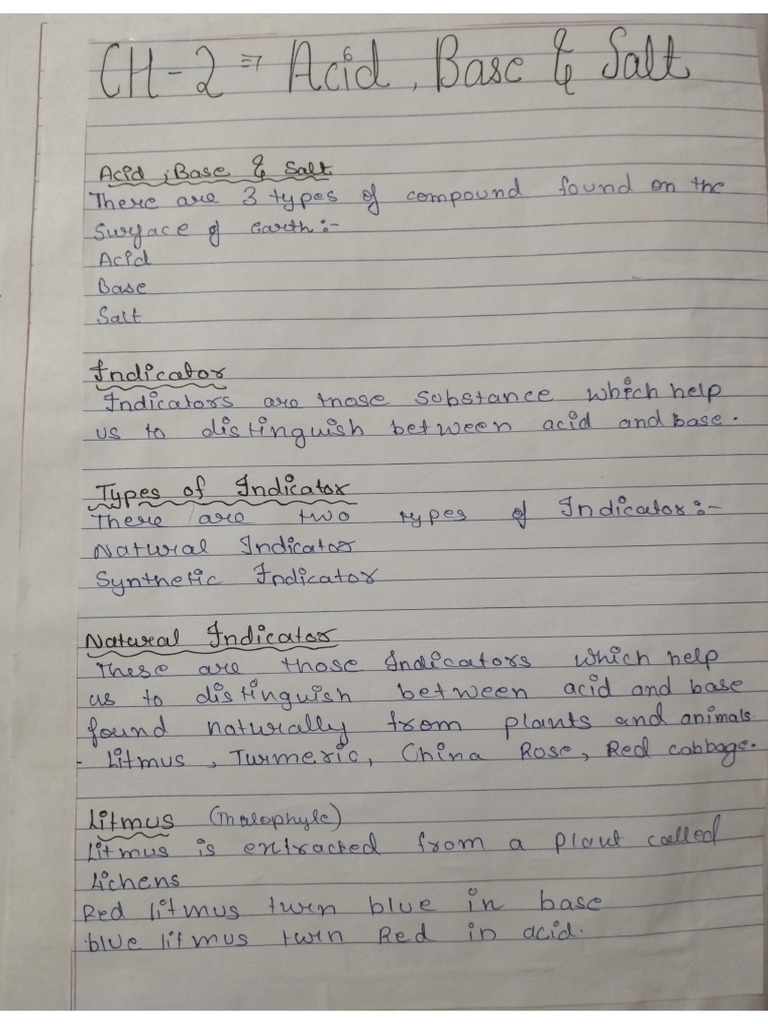 CH-2 ⇒ Acid, Base & Salt
Acid, Base & Salt
There are 3 types of compound found on the
Surface of Earth:-
Acid
Base
Salt
Indicator
Indicators are those substance which help
us to distinguish between acid and base.
Types of Indicator
There are two types of Indicator:-
Natural Indicator
Synthetic Indicator
Natural Indicator
These are those Indicators which help
us to distinguish between acid and base
found naturally from plants and animals.
- Litmus, Turmeric, China Rose, Red cabbage.
Litmus (Thalophyle)
Litmus is extracted from a plant called
Lichens
Red litmus turn blue in base
blue litmus turn Red in acid.